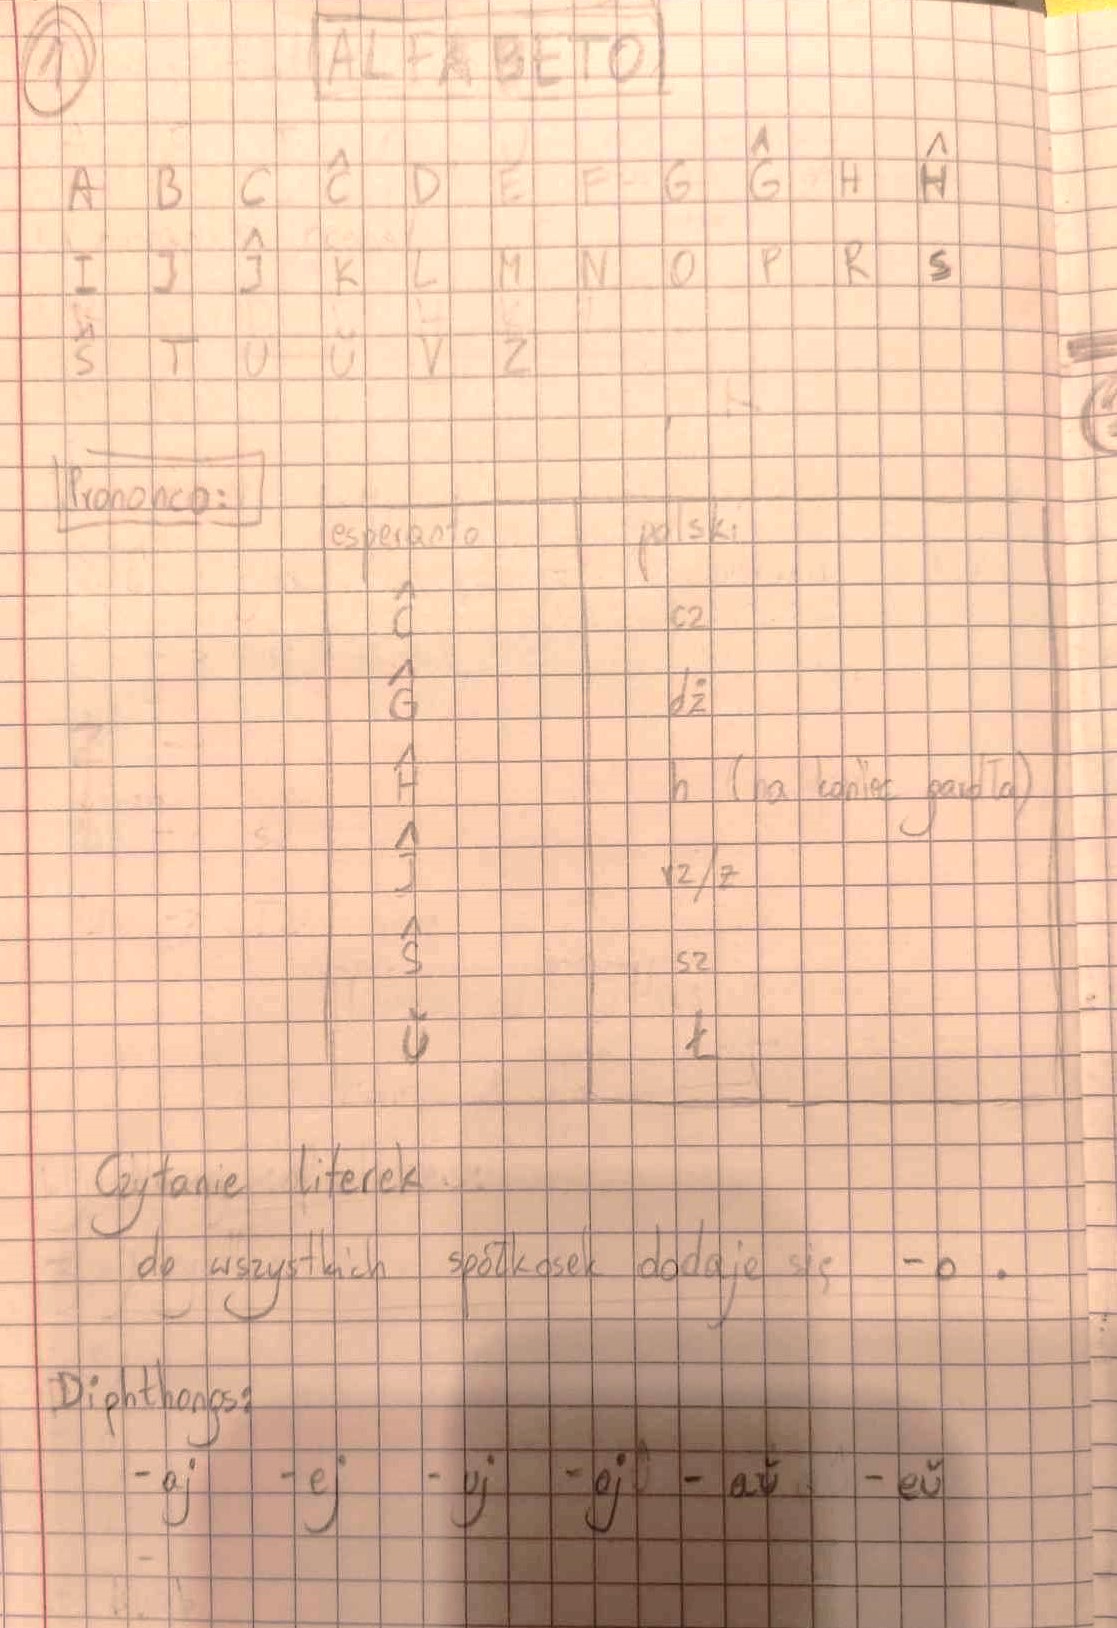 1
ALFABETO
A B C Ĉ D E F G Ĝ H Ĥ
I J Ĵ K L M N O P R S
Ŝ T U Ŭ V Z
Prononco:
esperanto polski
Ĉ cz
Ĝ dż
Ĥ h (na koniec gardła)
Ĵ rz/ż
Ŝ sz
Ŭ ł
Czytanie literek
do wszystkich spółkosek dodaje się -o.
Diphthongs:
-aj -ej -uj -oj -aŭ -eŭ